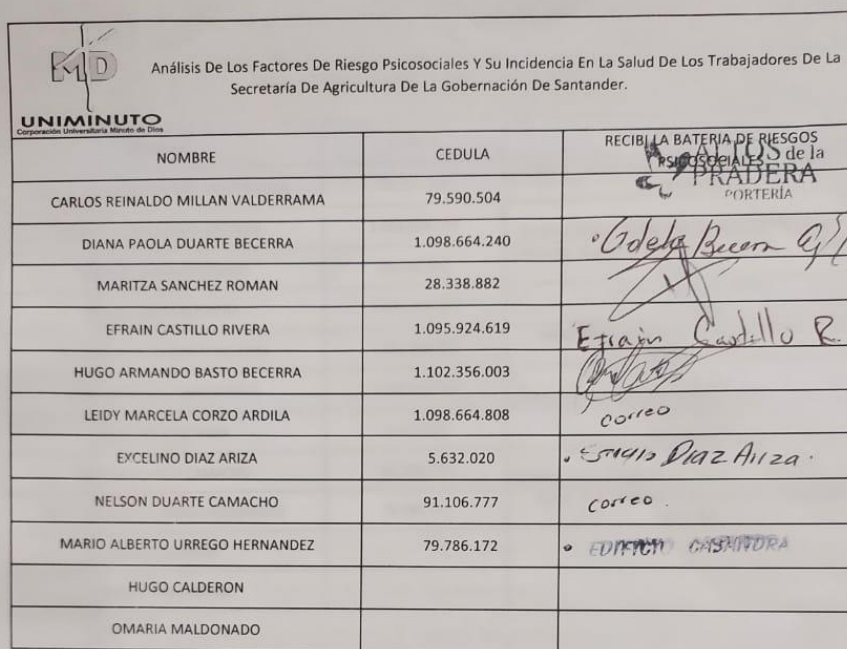 MD
UNIMINUTO
Corporación Universitaria Minuto de Dios
Análisis De Los Factores De Riesgo Psicosociales Y Su Incidencia En La Salud De Los Trabajadores De La
Secretaría De Agricultura De La Gobernación De Santander.
NOMBRE CEDULA RECIBI LA BATERIA DE RIESGOS
PSICOSOCIALES
ALTOS de la
PRADERA
PORTERÍA
CARLOS REINALDO MILLAN VALDERRAMA 79.590.504
DIANA PAOLA DUARTE BECERRA 1.098.664.240
MARITZA SANCHEZ ROMAN 28.338.882
EFRAIN CASTILLO RIVERA 1.095.924.619 Efrain Castillo R.
HUGO ARMANDO BASTO BECERRA 1.102.356.003
LEIDY MARCELA CORZO ARDILA 1.098.664.808 correo
EXCELINO DIAZ ARIZA 5.632.020 Diaz Ariza.
NELSON DUARTE CAMACHO 91.106.777 correo.
MARIO ALBERTO URREGO HERNANDEZ 79.786.172 EDIFICIO CASANDRA
HUGO CALDERON
OMARIA MALDONADO